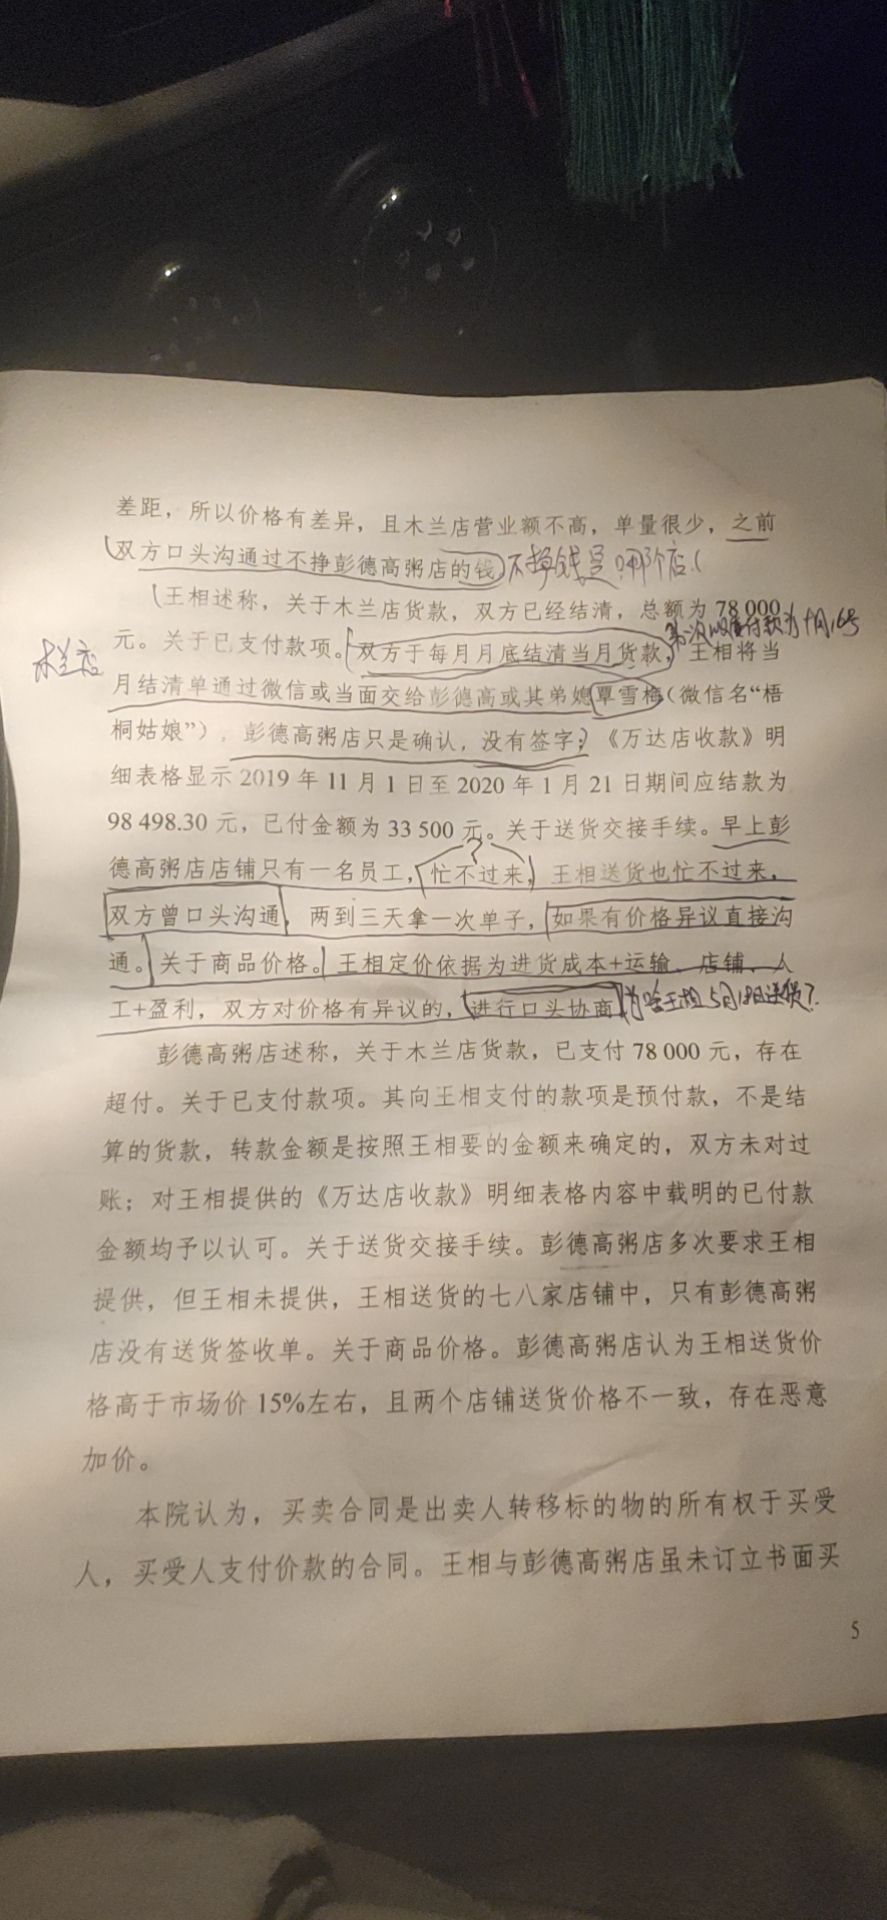 差距，所以价格有差异，且木兰店营业额不高，单量很少，之前
双方口头沟通过不挣彭德高粥店的钱 不挣钱是哪个店
王相述称，关于木兰店货款，双方已经结清，总额为 78 000
付款为 月16号
木兰店
元。关于已支付款项。双方于每月月底结清当月货款，王相将当
月结清单通过微信或当面交给彭德高或其弟媳覃雪梅（微信名“梧
桐姑娘”），彭德高粥店只是确认，没有签字；《万达店收款》明
细表格显示 2019 年 11 月 1 日至 2020 年 1 月 21 日期间应结款为
98 498.30 元，已付金额为 33 500 元。关于送货交接手续。早上彭
？
德高粥店店铺只有一名员工，忙不过来，王相送货也忙不过来，
双方曾口头沟通，两到三天拿一次单子，如果有价格异议直接沟
通。关于商品价格。王相定价依据为进货成本+运输、店铺、人
工+盈利，双方对价格有异议的，进行口头协商 为啥王相 5月18日送货？
彭德高粥店述称，关于木兰店货款，已支付 78 000 元，存在
超付。关于已支付款项。其向王相支付的款项是预付款，不是结
算的货款，转款金额是按照王相要的金额来确定的，双方未对过
账；对王相提供的《万达店收款》明细表格内容中载明的已付款
金额均予以认可。关于送货交接手续。彭德高粥店多次要求王相
提供，但王相未提供，王相送货的七八家店铺中，只有彭德高粥
店没有送货签收单。关于商品价格。彭德高粥店认为王相送货价
格高于市场价 15%左右，且两个店铺送货价格不一致，存在恶意
加价。
本院认为，买卖合同是出卖人转移标的物的所有权于买受
人，买受人支付价款的合同。王相与彭德高粥店虽未订立书面买
5